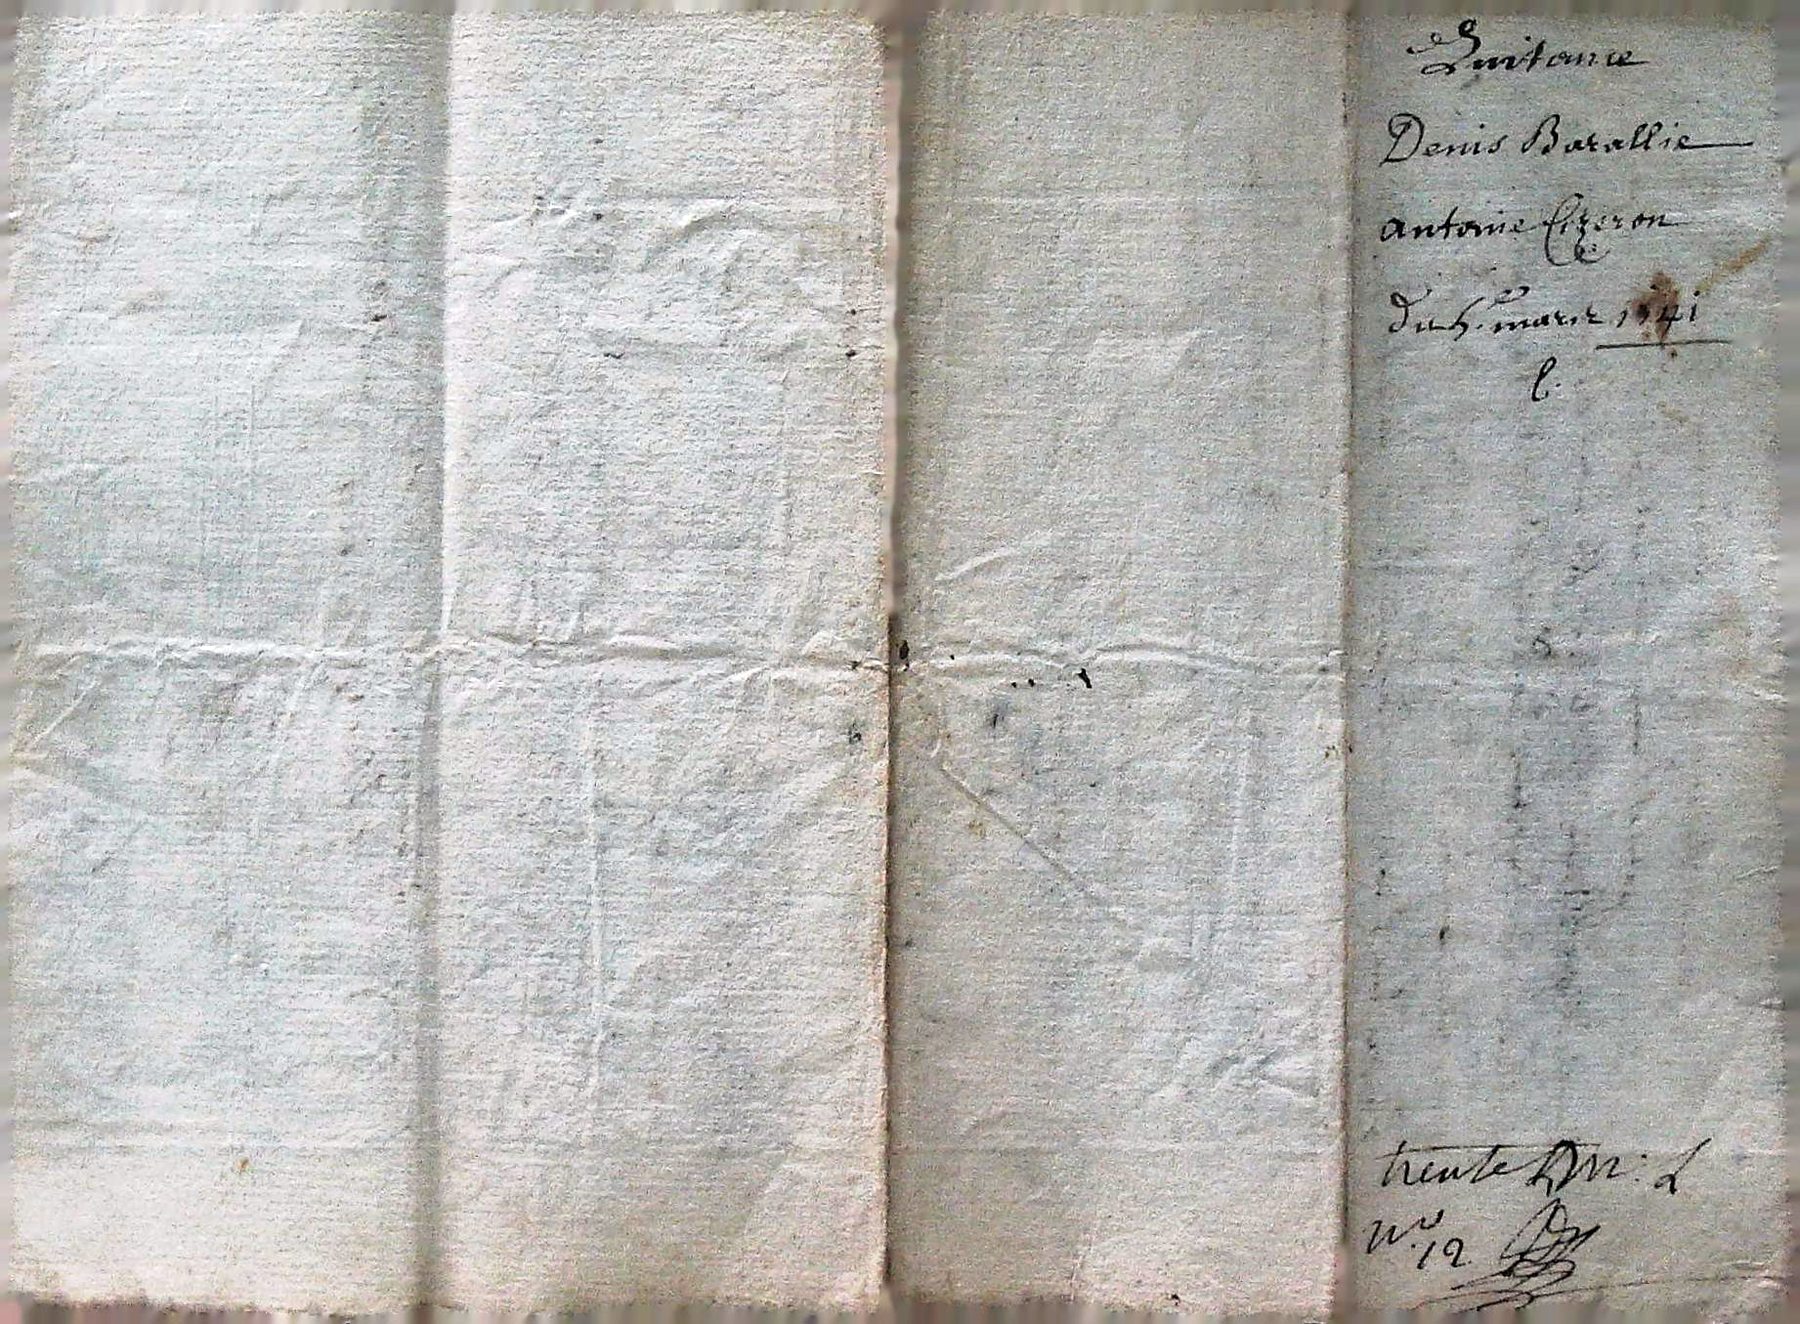 Quitance
Denis Barallie
antoine Cizeron
du 5e. mars 1741
C.
trente
no. 12